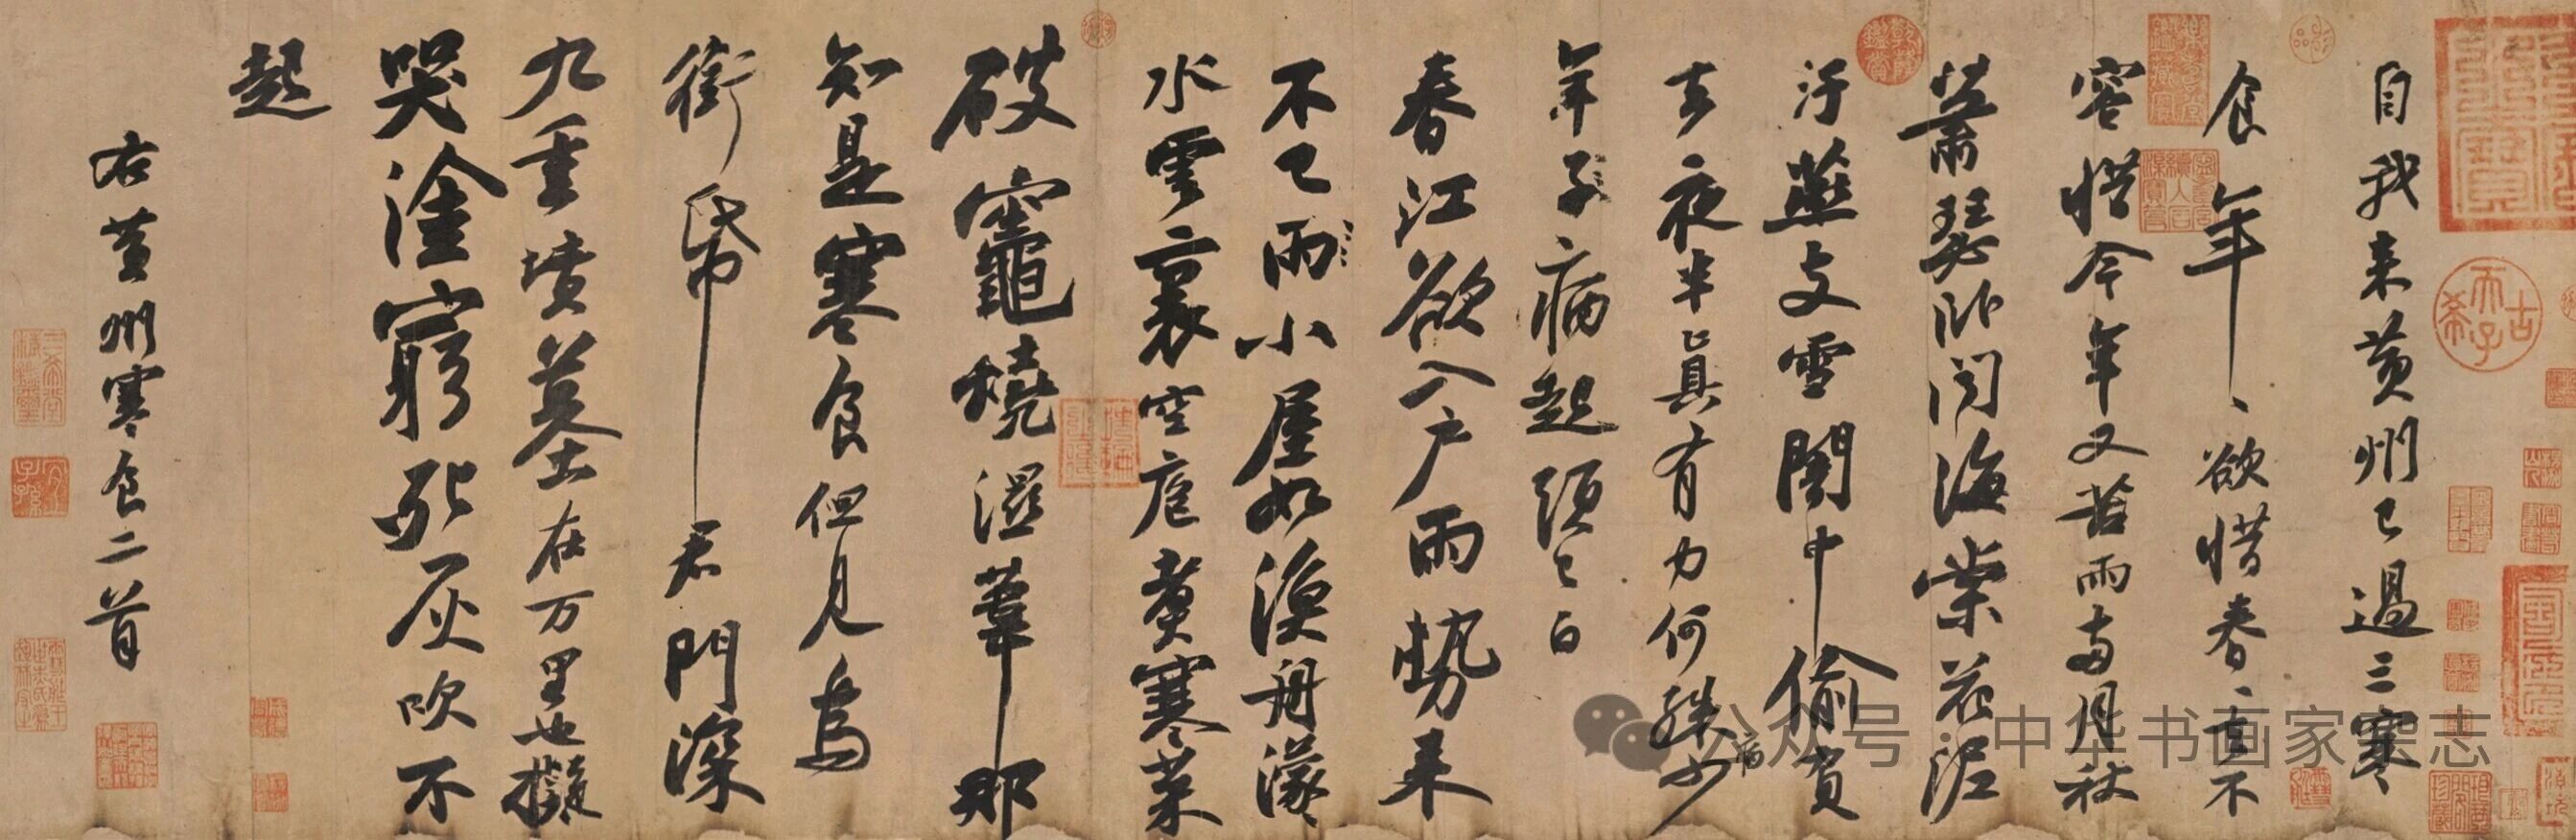 自我来黄州已過三寒
食年、欲惜春、去不
容惜今年又苦雨兩月秋
蕭瑟卧聞海棠花泥
汙燕支雪闇中偷負
去夜半真有力何殊少
年子病起頭已白
春江欲入户雨勢来
不已雨小屋如漁舟濛
水雲裏空庖煮寒菜
破竈燒濕葦那
知是寒食但見烏
銜帋君門深
九重墳墓在万里也擬
哭塗窮死灰吹不
起
右黄州寒食二首
天子古希
公众号·中华书画家杂志